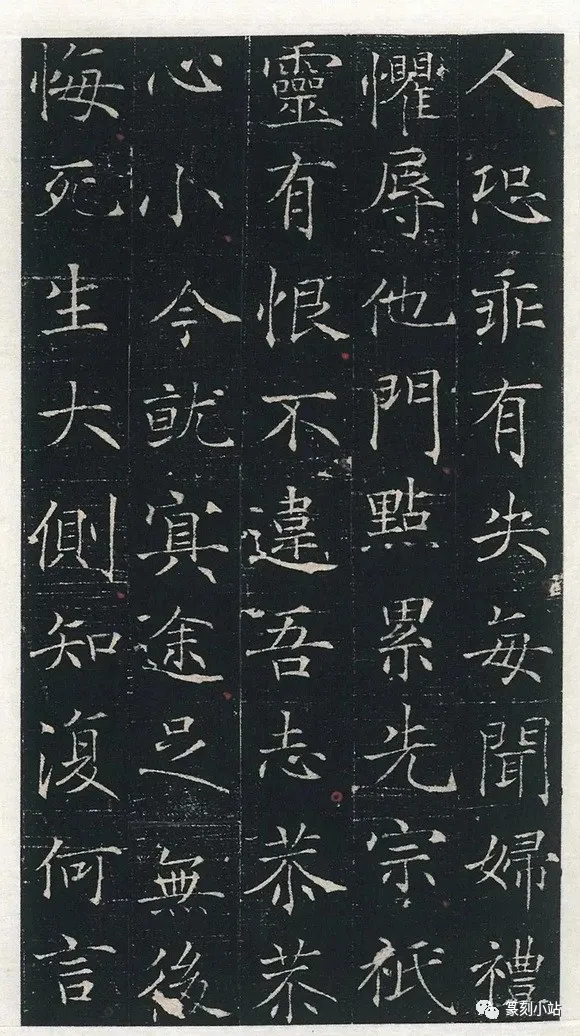 人恐乖有失每聞婦禮
懼辱他門點累先宗祇
靈有恨不違吾志恭恭
心小今就冥途足無後
悔死生大側知復何言
篆刻小站